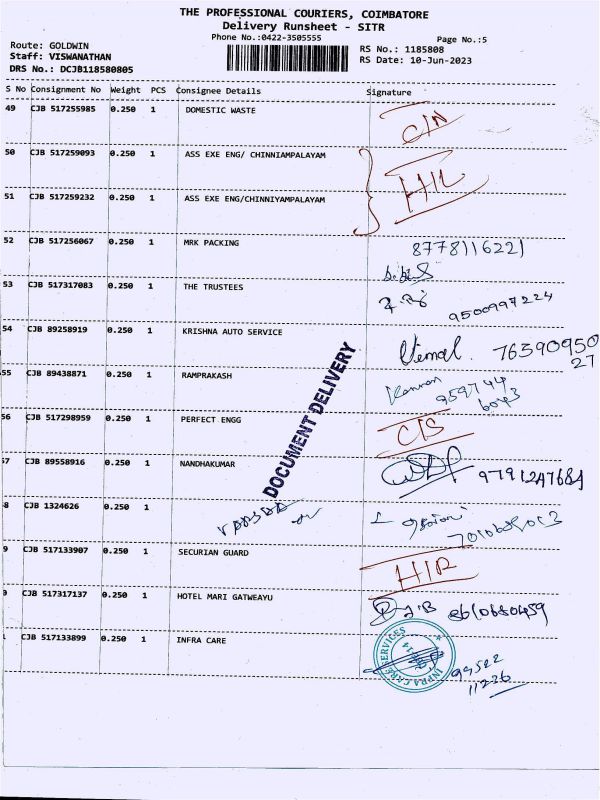 THE PROFESSIONAL COURIERS, COIMBATORE
Delivery Runsheet - SITR
Phone No.:0422-3505555
Page No.:5
Route: GOLDWIN
RS No.: 1185808
Staff: VISWANATHAN
RS Date: 10-Jun-2023
DRS No.: DCJB118580805
S No Consignment No Weight PCS Consignee Details Signature
49 CJB 517255985 0.250 1 DOMESTIC WASTE
50 CJB 517259093 0.250 1 ASS EXE ENG/ CHINNIAMPALAYAM
51 CJB 517259232 0.250 1 ASS EXE ENG/CHINNIYAMPALAYAM
52 CJB 517256067 0.250 1 MRK PACKING 8778116221
53 CJB 517317083 0.250 1 THE TRUSTEES 9500997224
54 CJB 89258919 0.250 1 KRISHNA AUTO SERVICE Vimal. 7659095027
55 CJB 89438871 0.250 1 RAMPRAKASH Kannan
56 CJB 517298959 0.250 1 PERFECT ENGG
57 CJB 89558916 0.250 1 NANDHAKUMAR
8 CJB 1324626 0.250 1
9 CJB 517133907 0.250 1 SECURIAN GUARD
CJB 517317137 0.250 1 HOTEL MARI GATWEAYU
CJB 517133899 0.250 1 INFRA CARE
DOCUMENT DELIVERY
INFRA CARE SERVICES